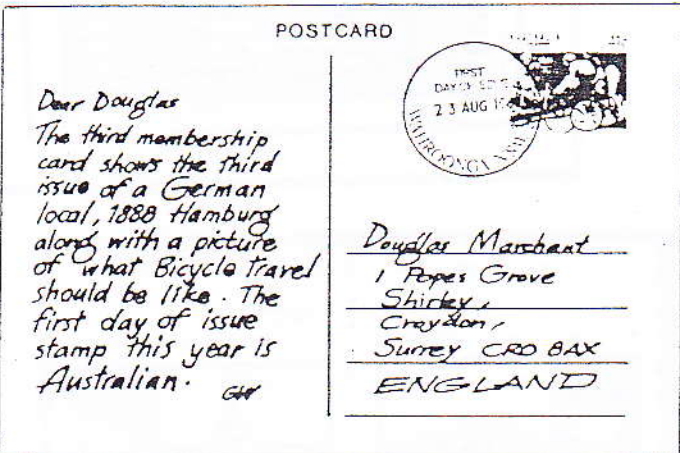 POSTCARD
Dear Douglas
The third membership
card shows the third
issue of a German
local, 1888 Hamburg
along with a picture
of what Bicycle Travel
should be like. The
first day of issue
stamp this year is
Australian.
FIRST
DAY OF
23 AUG
WAHROONGA NSW
Douglas Marchant
1 Popes Grove
Shirley,
Croydon,
Surrey CRO 8AX
ENGLAND